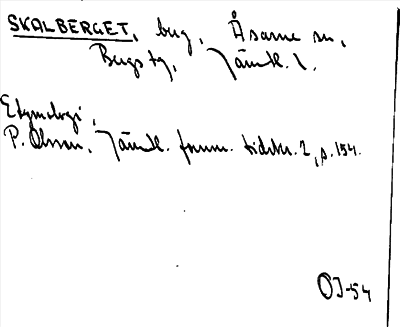 SKALBERGET, berg, Åsarne sn,
Bergs tg, Jämtl. l.
Etymologi.
P. Olsson, Jämtl. fornm. tidskr. 2, s. 154.
OJ-54